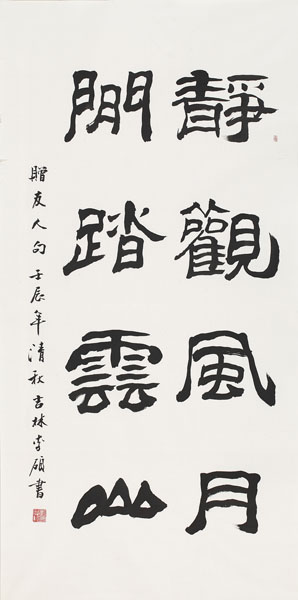 靜觀風月
閒踏雲山
贈友人句壬辰年清秋吉林李碩書